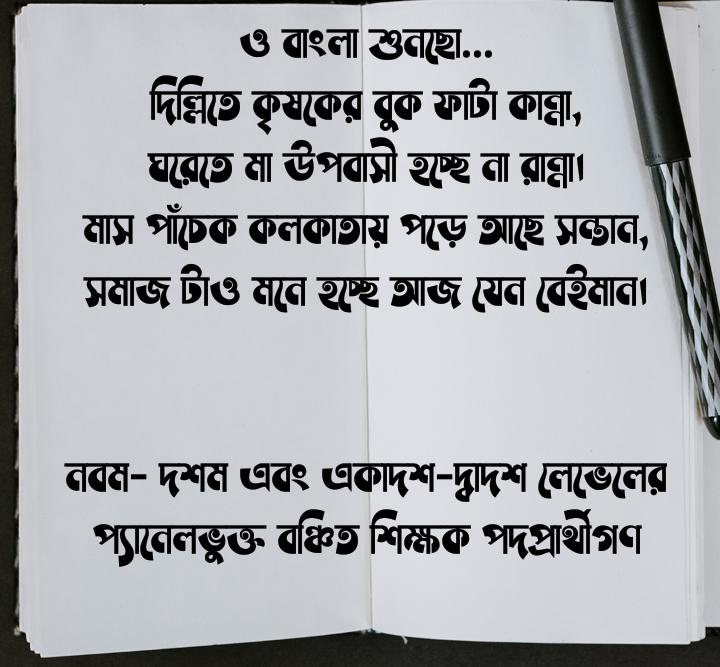 ও বাংলা শুনছো...
দিল্লিতে কৃষকের বুক ফাটা কান্না,
ঘরেতে মা উপবাসী হচ্ছে না রান্না।
মাস পাঁচেক কলকাতায় পড়ে আছে সন্তান,
সমাজ টাও মনে হচ্ছে আজ যেন বেইমান।
নবম- দশম এবং একাদশ-দ্বাদশ লেভেলের
প্যানেলভুক্ত বঞ্চিত শিক্ষক পদপ্রার্থীগণ